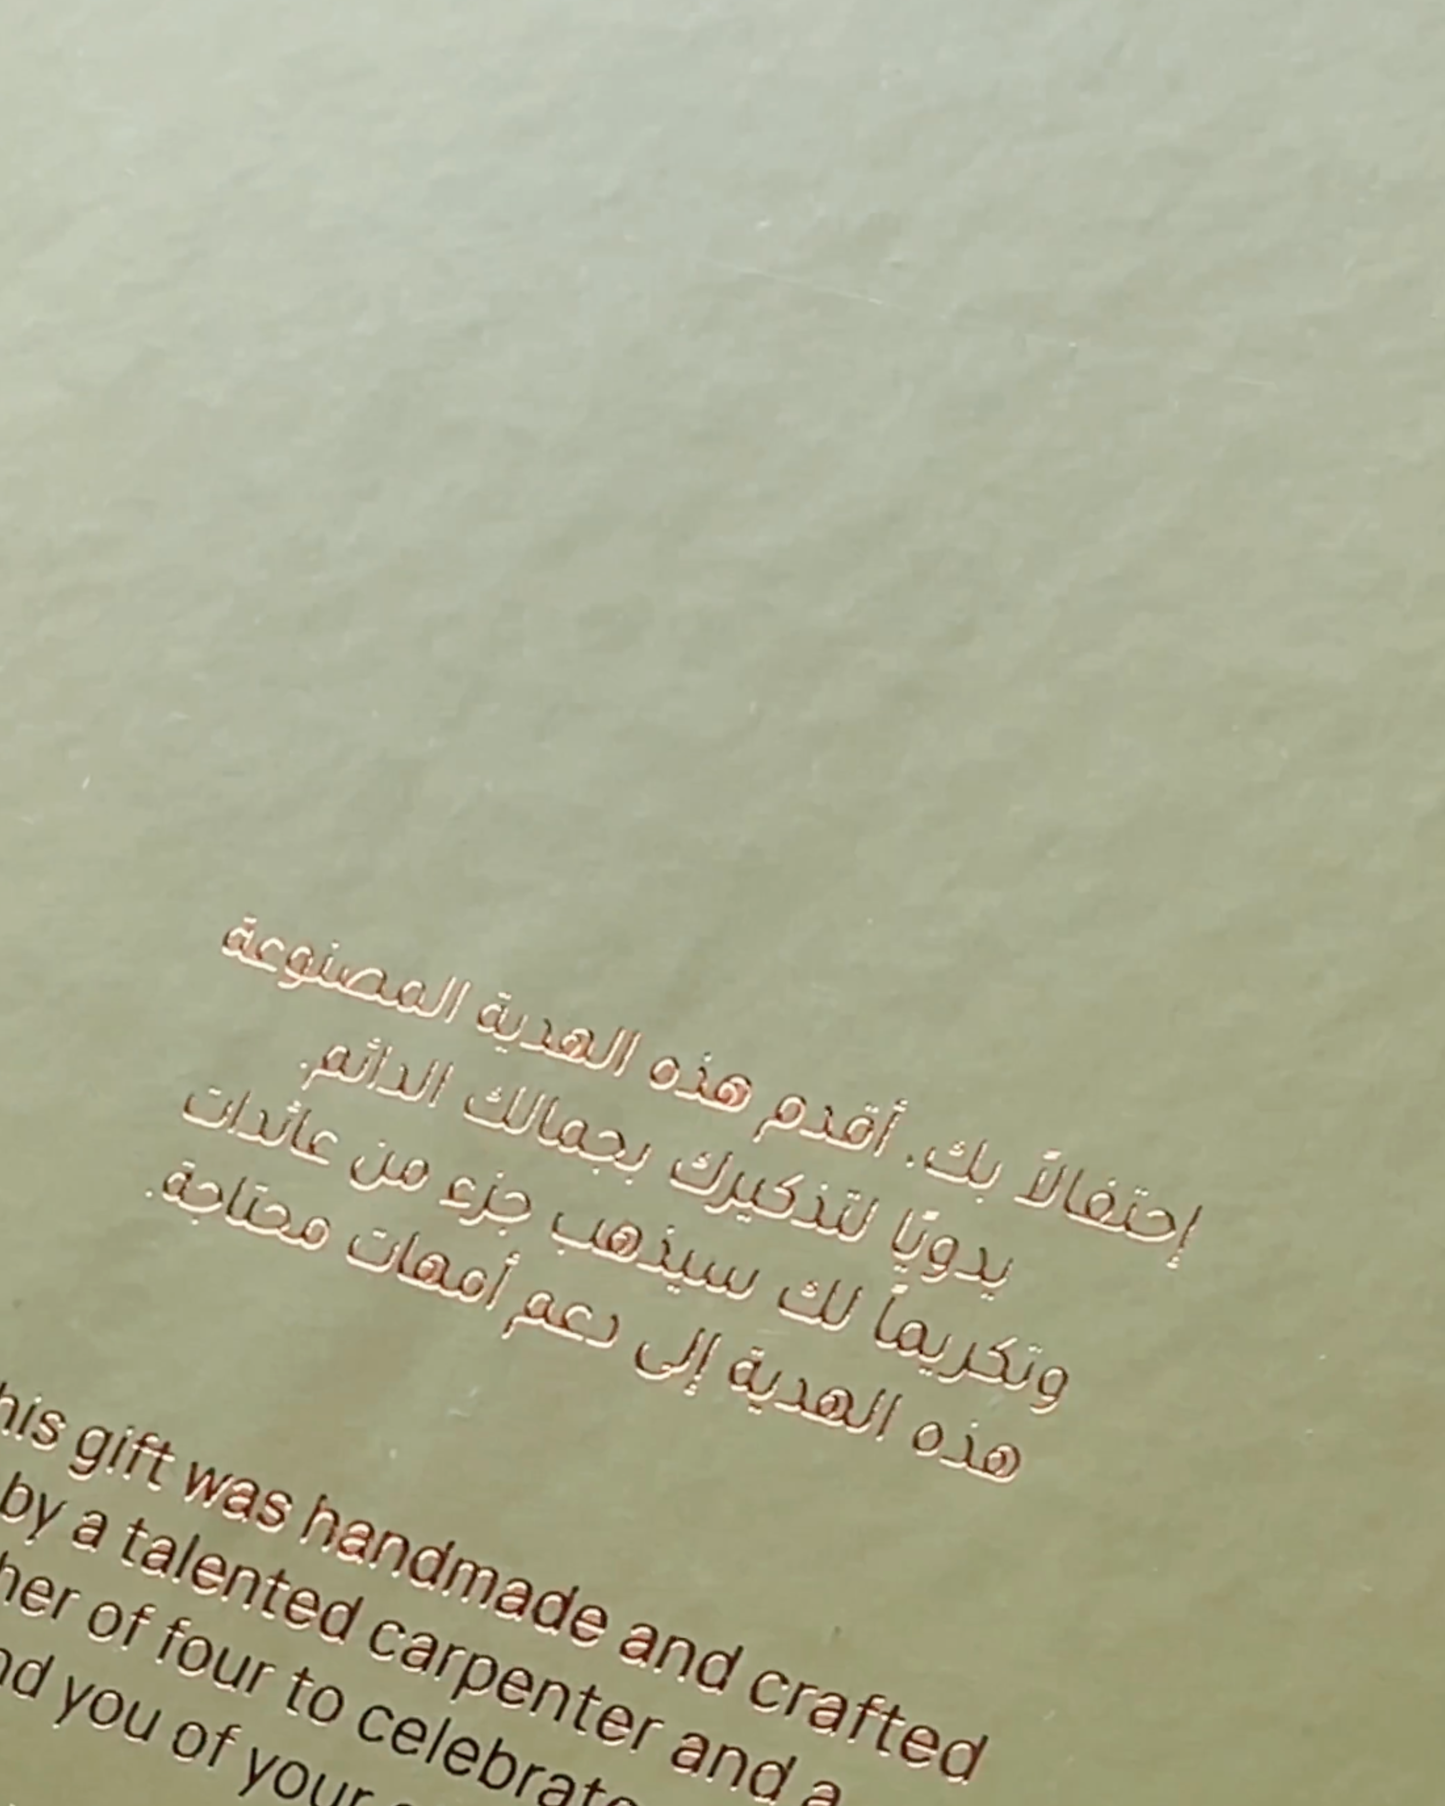 إحتفالاً بك. أقدم هذه الهدية المصنوعة
يدويًا لتذكيرك بجمالك الدائم.
وتكريماً لك سيذهب جزء من عائدات
هذه الهدية إلى دعم أمهات محتاجة.
his gift was handmade and crafted
by a talented carpenter and a
her of four to celebrate
nd you of your